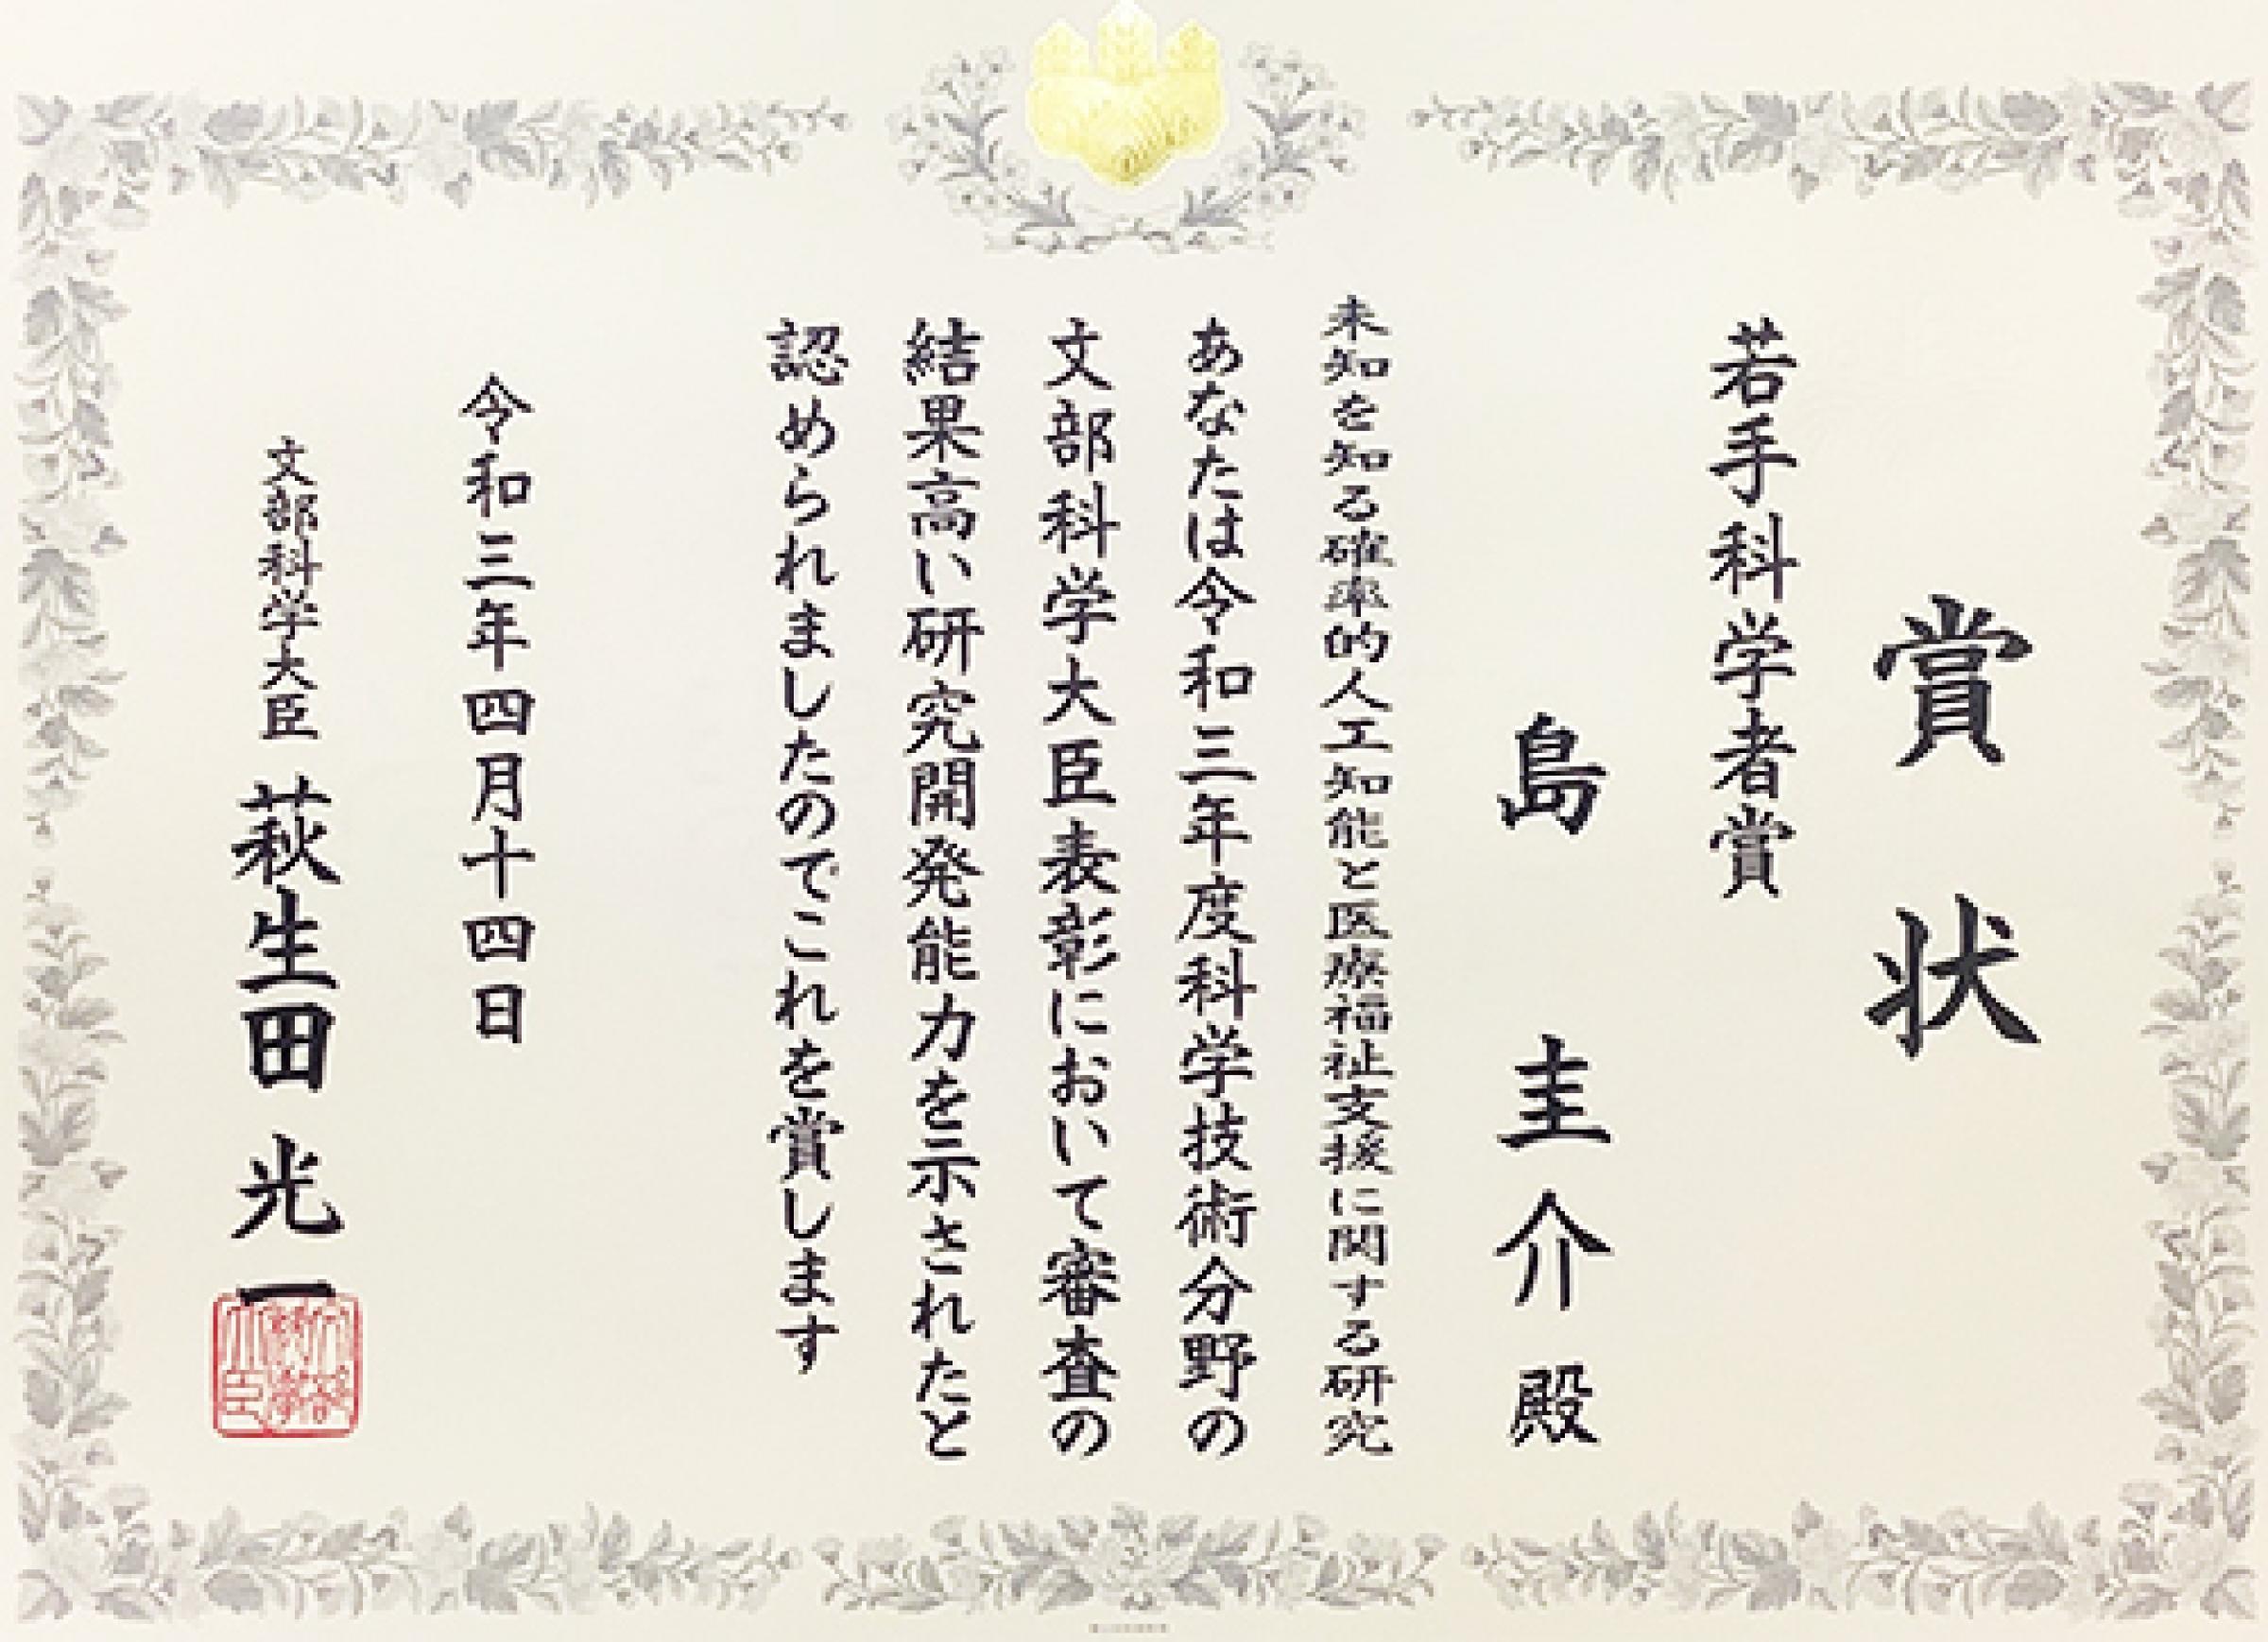 賞状
若手科学者賞
島圭介殿
未知を知る確率的人工知能と医療福祉支援に関する研究
あなたは令和三年度科学技術分野の
文部科学大臣表彰において審査の
結果高い研究開発能力を示されたと
認められましたのでこれを賞します
令和三年四月十四日
文部科学大臣 萩生田光一